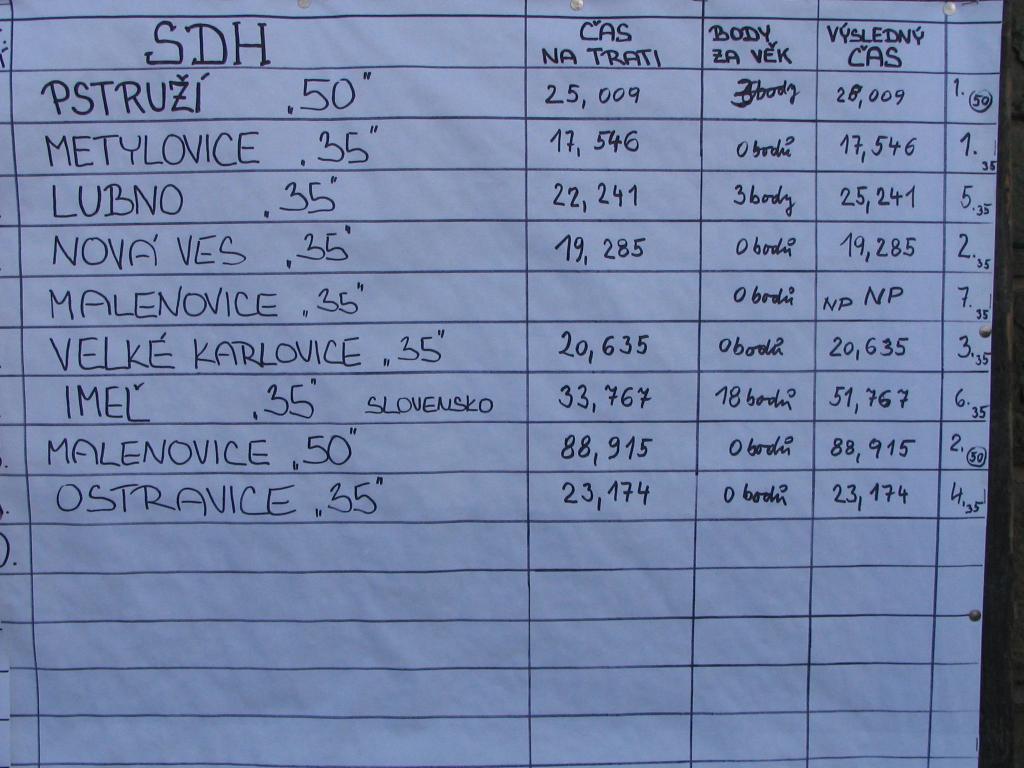 SDH ČAS NA TRATI BODY ZA VĚK VÝSLEDNÝ ČAS
PSTRUŽÍ „50" 25,009 3body 28,009 1. 50
METYLOVICE „35" 17,546 0 bodů 17,546 1. 35
LUBNO „35" 22,241 3 body 25,241 5. 35
NOVÁ VES „35" 19,285 0 bodů 19,285 2. 35
MALENOVICE „35" 0 bodů NP NP 7. 35
VELKÉ KARLOVICE „35" 20,635 0 bodů 20,635 3. 35
IMEĽ „35" SLOVENSKO 33,767 18 bodů 51,767 6. 35
MALENOVICE „50" 88,915 0 bodů 88,915 2. 50
OSTRAVICE „35" 23,174 0 bodů 23,174 4. 35